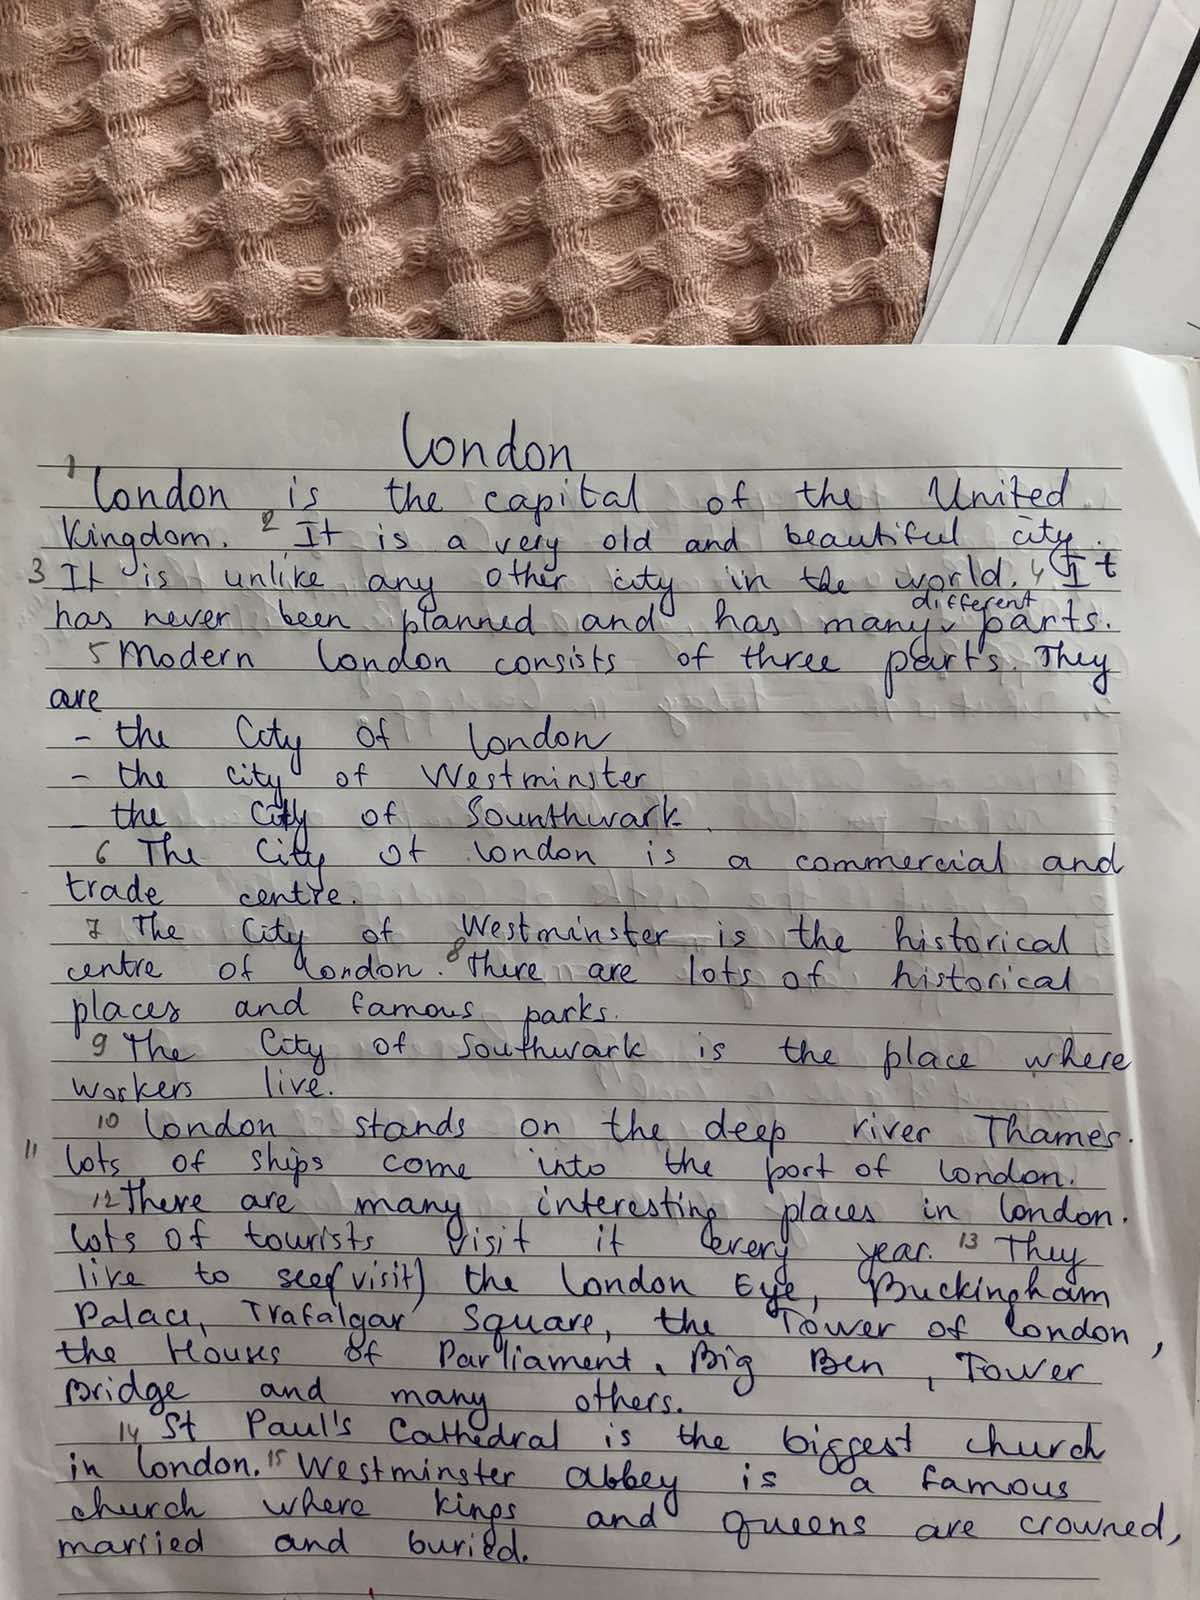 London
1 London is the capital of the United
Kingdom. 2 It is a very old and beautiful city.
3 It is unlike any other city in the world. 4 It
different
has never been planned and has many parts.
5 Modern London consists of three parts. They
are
- the City of London
- the city of Westminster
- the City of Sounthwark.
6 The City of London is a commercial and
trade centre.
7 The City of Westminster is the historical
centre of London. 8 There are lots of historical
places and famous parks.
9 The City of Southwark is the place where
workers live.
10 London stands on the deep river Thames.
11 Lots of ships come into the port of London.
12 There are many interesting places in London.
Lots of tourists visit it every year. 13 They
like to see (visit) the London Eye, Buckingham
Palace, Trafalgar Square, the Tower of London,
the Houses of Parliament, Big Ben, Tower
Bridge and many others.
14 St Paul's Cathedral is the biggest church
in London. 15 Westminster Abbey is a famous
church where kings and queens are crowned,
married and buried.